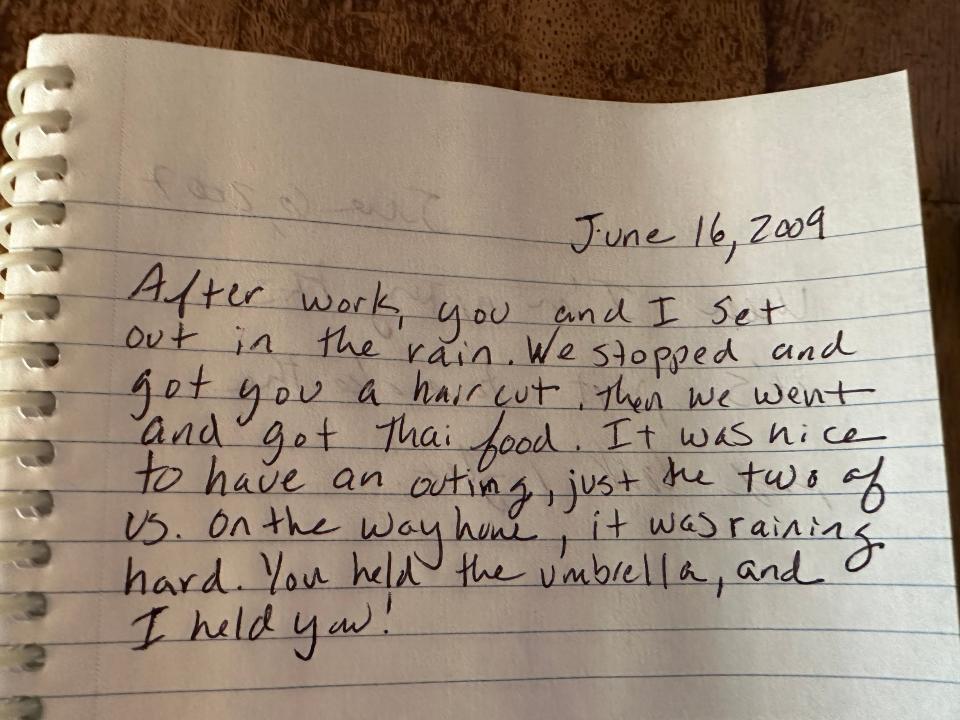 June 16, 2009
After work, you and I set
out in the rain. We stopped and
got you a haircut. Then we went
and got Thai food. It was nice
to have an outing, just the two of
us. On the way home, it was raining
hard. You held the umbrella, and
I held you!